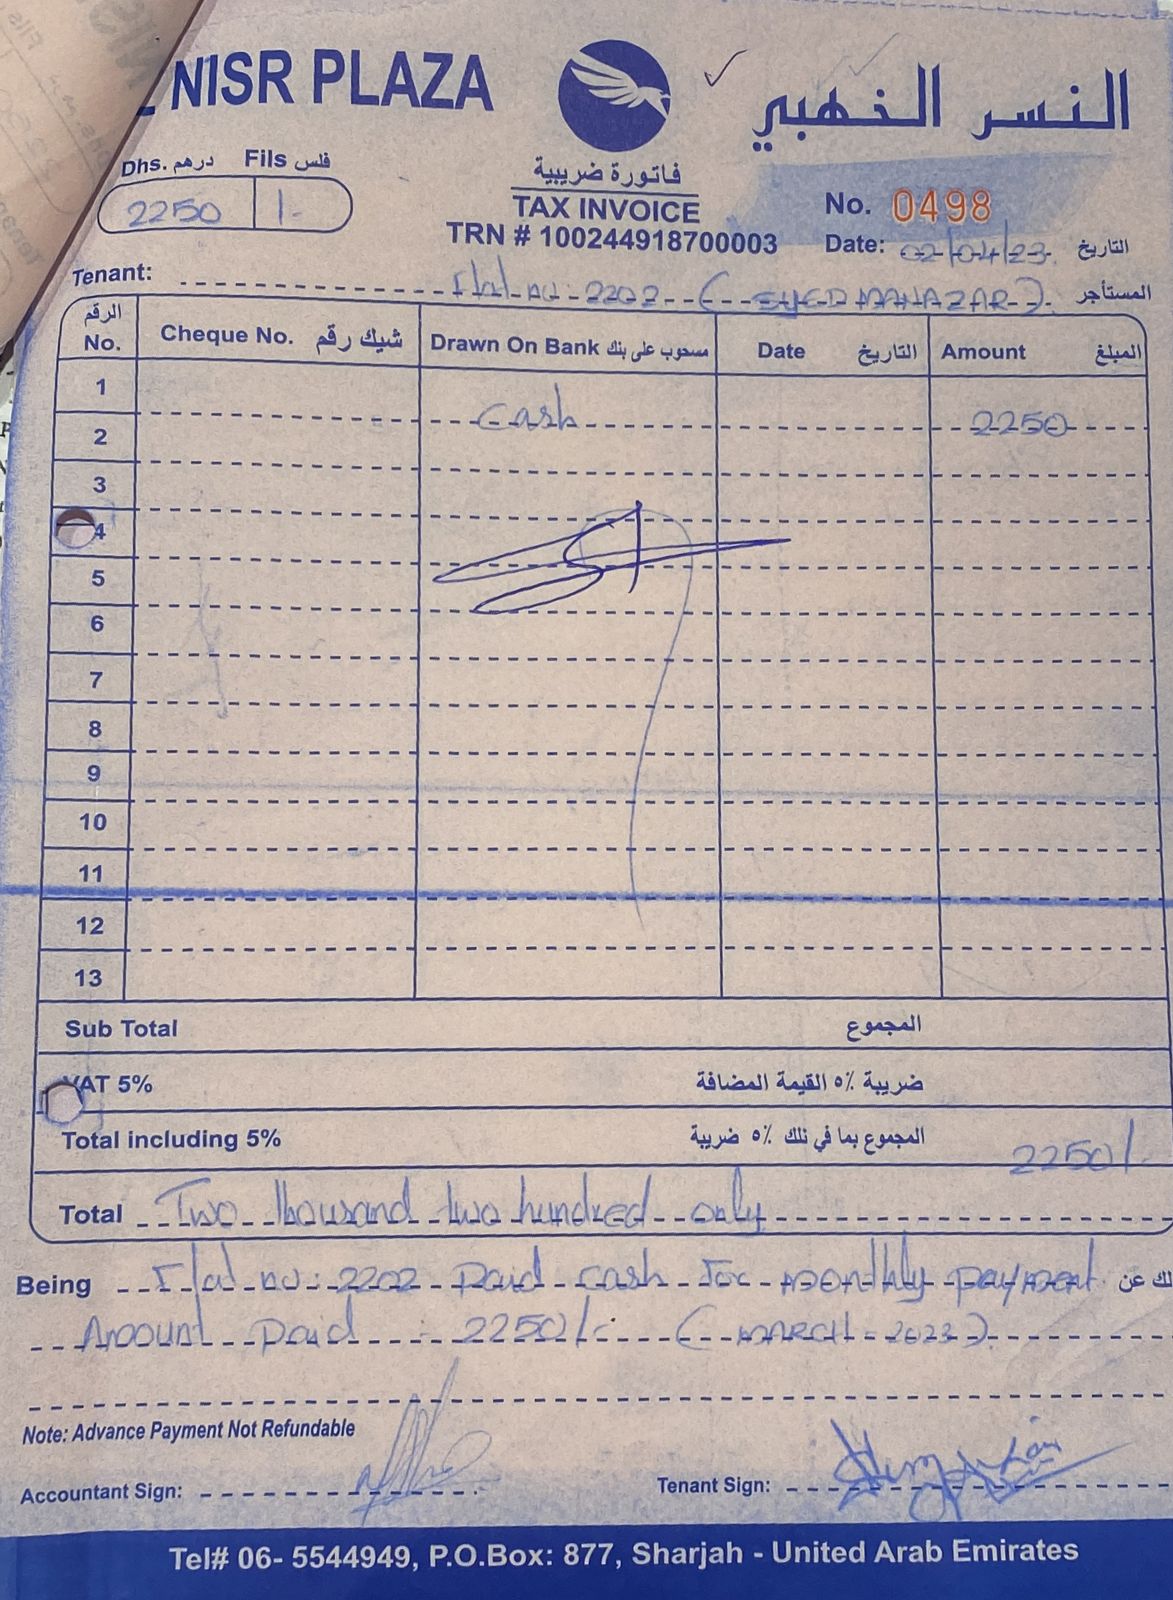 NISR PLAZA
النسر الذهبي
Dhs. درهم Fils فلس
2250 /-
فاتورة ضريبية
TAX INVOICE
TRN # 100244918700003
No. 0498
Date: 02/04/23 التاريخ
Tenant: Flat no: 2202 (SYED MANAZAR) المستأجر
الرقم No. Cheque No. شيك رقم Drawn On Bank مسحوب على بنك Date التاريخ Amount المبلغ
1
2 Cash 2250
3
4
5
6
7
8
9
10
11
12
13
Sub Total المجموع
VAT 5% ضريبة ٥٪ القيمة المضافة
Total including 5% المجموع بما في ذلك ٥٪ ضريبة 2250/-
Total Two thousand two hundred only
Being Flat no: 2202 Paid cash For monthly payment لك عن
Amount Paid : 2250/- (MARCH-2023).
Note: Advance Payment Not Refundable
Accountant Sign: Tenant Sign:
Tel# 06- 5544949, P.O.Box: 877, Sharjah - United Arab Emirates